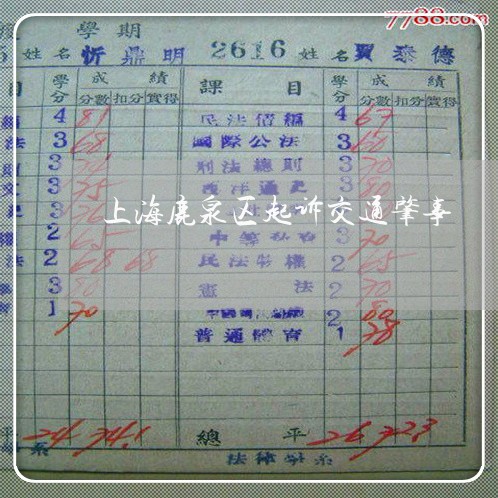 7788.com
學期
姓名 忻鼎明 2616 姓名 賈泰德
目 學分 成績 分數 扣分 實得 課目 學分 成績 分數 扣分 實得
4 81 民法債編 4 67
法 3 68 國際公法 3 60
3 刑法總則 3 70
3 75 西洋通史 3 80
上海鹿泉区起诉交通肇事
3
權 2 65 3 70
法 2 68 68 民法物權 2 65
3 80 憲法 2 70
1 70 2 80
普通體育 1 78
平 24 74.1 總平 26 72.3
系 法律學系